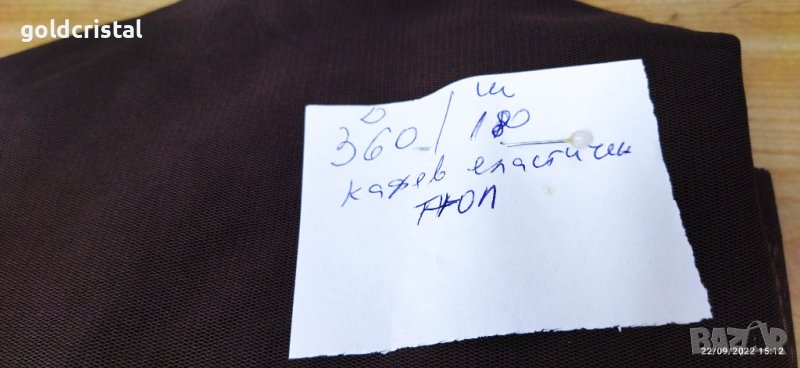 goldcristal
Д Ш
360 / 180
кафев еластичен
тюл
BAZAR
22/09/2022 15:12